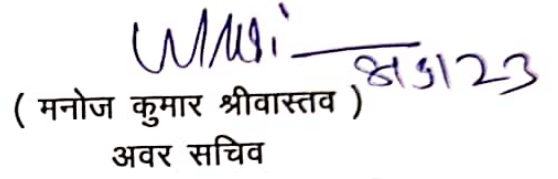 ( मनोज कुमार श्रीवास्तव )
अवर सचिव